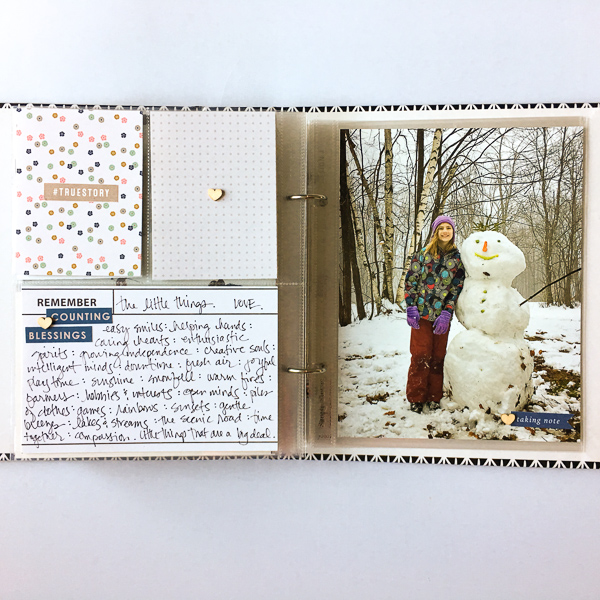 #TRUESTORY
REMEMBER the little things. LOVE.
COUNTING
BLESSINGS easy smiles : helping hands :
caring hearts : enthusiastic
spirits : growing independence : creative souls :
intelligent minds : downtime : fresh air : joyful
playtime : sunshine : snowfall : warm fires :
: hobbies & interests : open minds : piles
of clothes : games : rainbows : sunsets : gentle
: lakes & streams : the scenic road : time
together : compassion. little things that are a big deal.
taking note